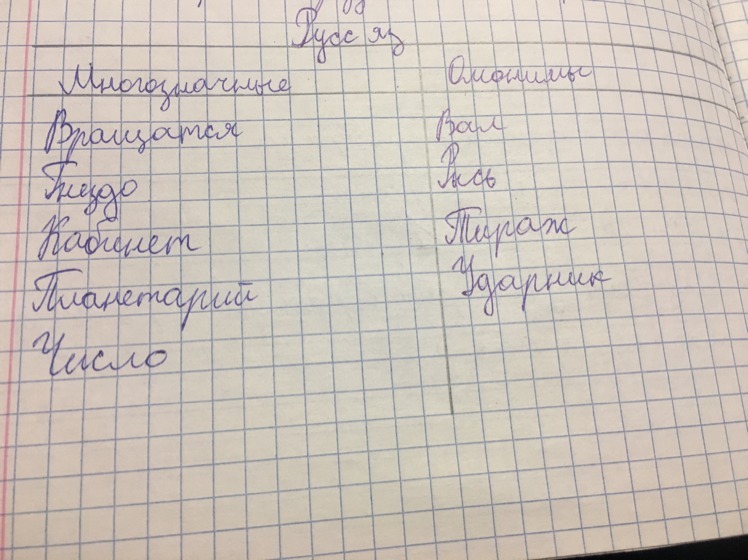 Русс яз
Многозначные Омонимы
Вращатся Вал
Гнездо Рысь
Кабинет Тираж
Планетарий Ударник
Число